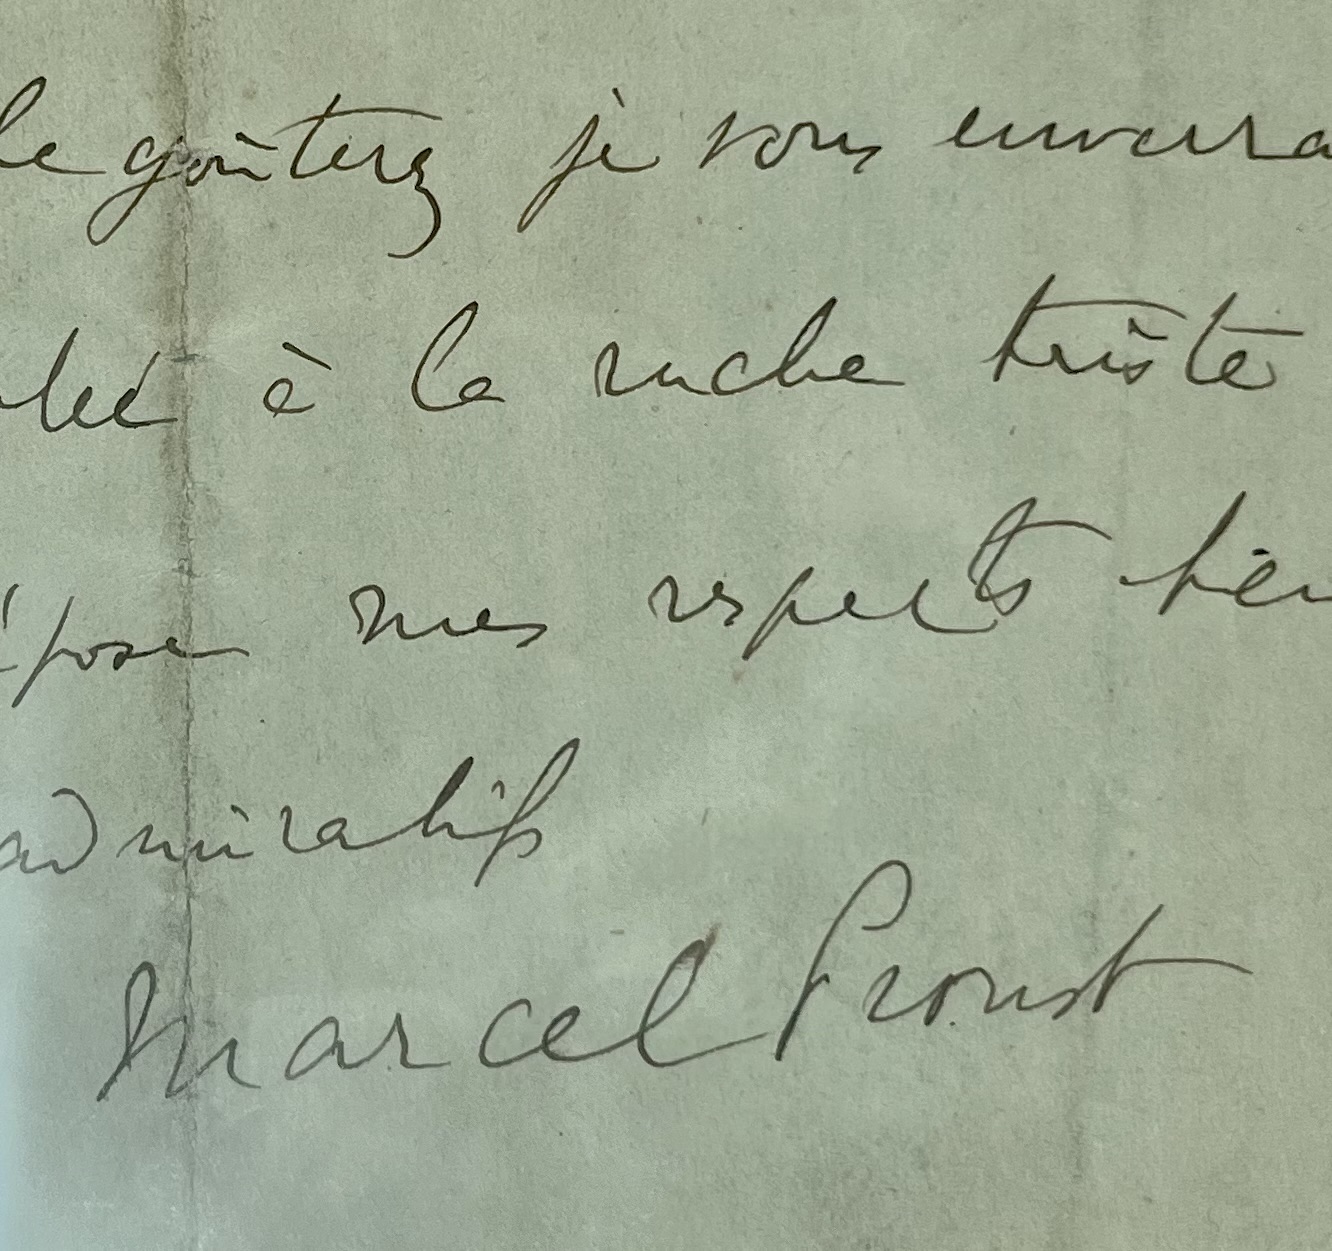 le goûterez je vous enverra
à la ruche triste
mes respects bien
admiratifs
Marcel Proust